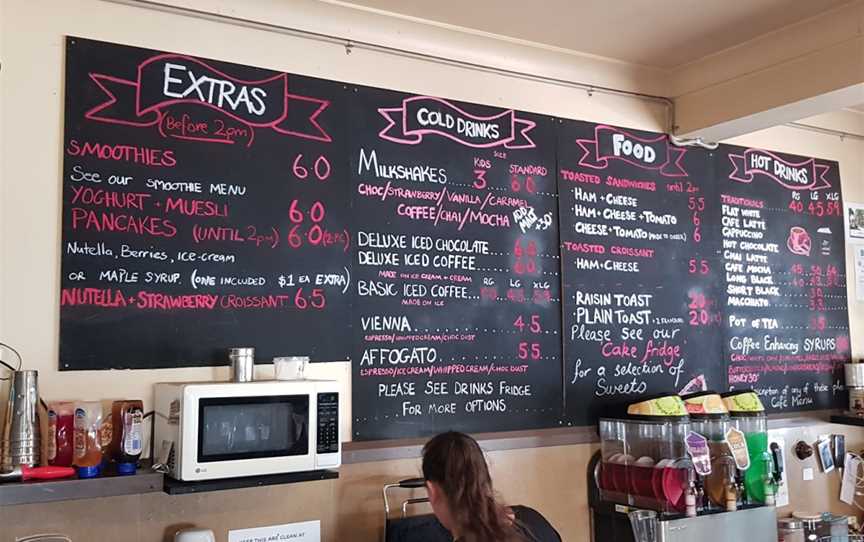 EXTRAS
(Before 2pm)
SMOOTHIES 6.0
See our SMOOTHIE MENU
YOGHURT + MUESLI 6.0
PANCAKES (UNTIL 2pm) 6.0 (2PC)
Nutella, Berries, Ice-cream
OR MAPLE SYRUP. (ONE INCLUDED $1 EA EXTRA)
NUTELLA + STRAWBERRY CROISSANT 6.5
COLD DRINKS
SIZE
MILKSHAKES KIDS 3 STANDARD 6.0
CHOC/STRAWBERRY/VANILLA/CARAMEL
COFFEE/CHAI/MOCHA ADD MALT +50
DELUXE ICED CHOCOLATE
DELUXE ICED COFFEE 6.0
MADE ON ICE CREAM + CREAM RG LG XLG
BASIC ICED COFFEE 4.5 5.9
MADE ON ICE
VIENNA 4.5
ESPRESSO/WHIPPED CREAM/CHOC DUST
AFFOGATO 5.5
ESPRESSO/ICECREAM/WHIPPED CREAM/CHOC DUST
PLEASE SEE DRINKS FRIDGE
FOR MORE OPTIONS
FOOD
TOASTED SANDWICHES until 2pm
· HAM + CHEESE 5.5
· HAM + CHEESE + TOMATO 6
· CHEESE + TOMATO (MADE TO ORDER) 6
TOASTED CROISSANT
· HAM + CHEESE 5.5
· RAISIN TOAST 2.0
· PLAIN TOAST 2.0
Please See our
"Cake fridge"
for a selection of
Sweets
HOT DRINKS
TRADITIONALS RG LG XLG
FLAT WHITE 4.0 4.5 5.9
CAFE LATTE
CAPPUCCINO
HOT CHOCOLATE
CHAI LATTE
CAFE MOCHA 4.5 5.0 6.4
LONG BLACK
SHORT BLACK
MACCHIATO
POT OF TEA 3.5
Coffee Enhancing SYRUPS
HONEY 30¢
of any of these
Cafe Menu
LG